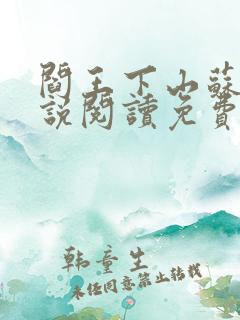 閻王下山蘇
說閱讀免費
韩童生
未经同意禁止转载